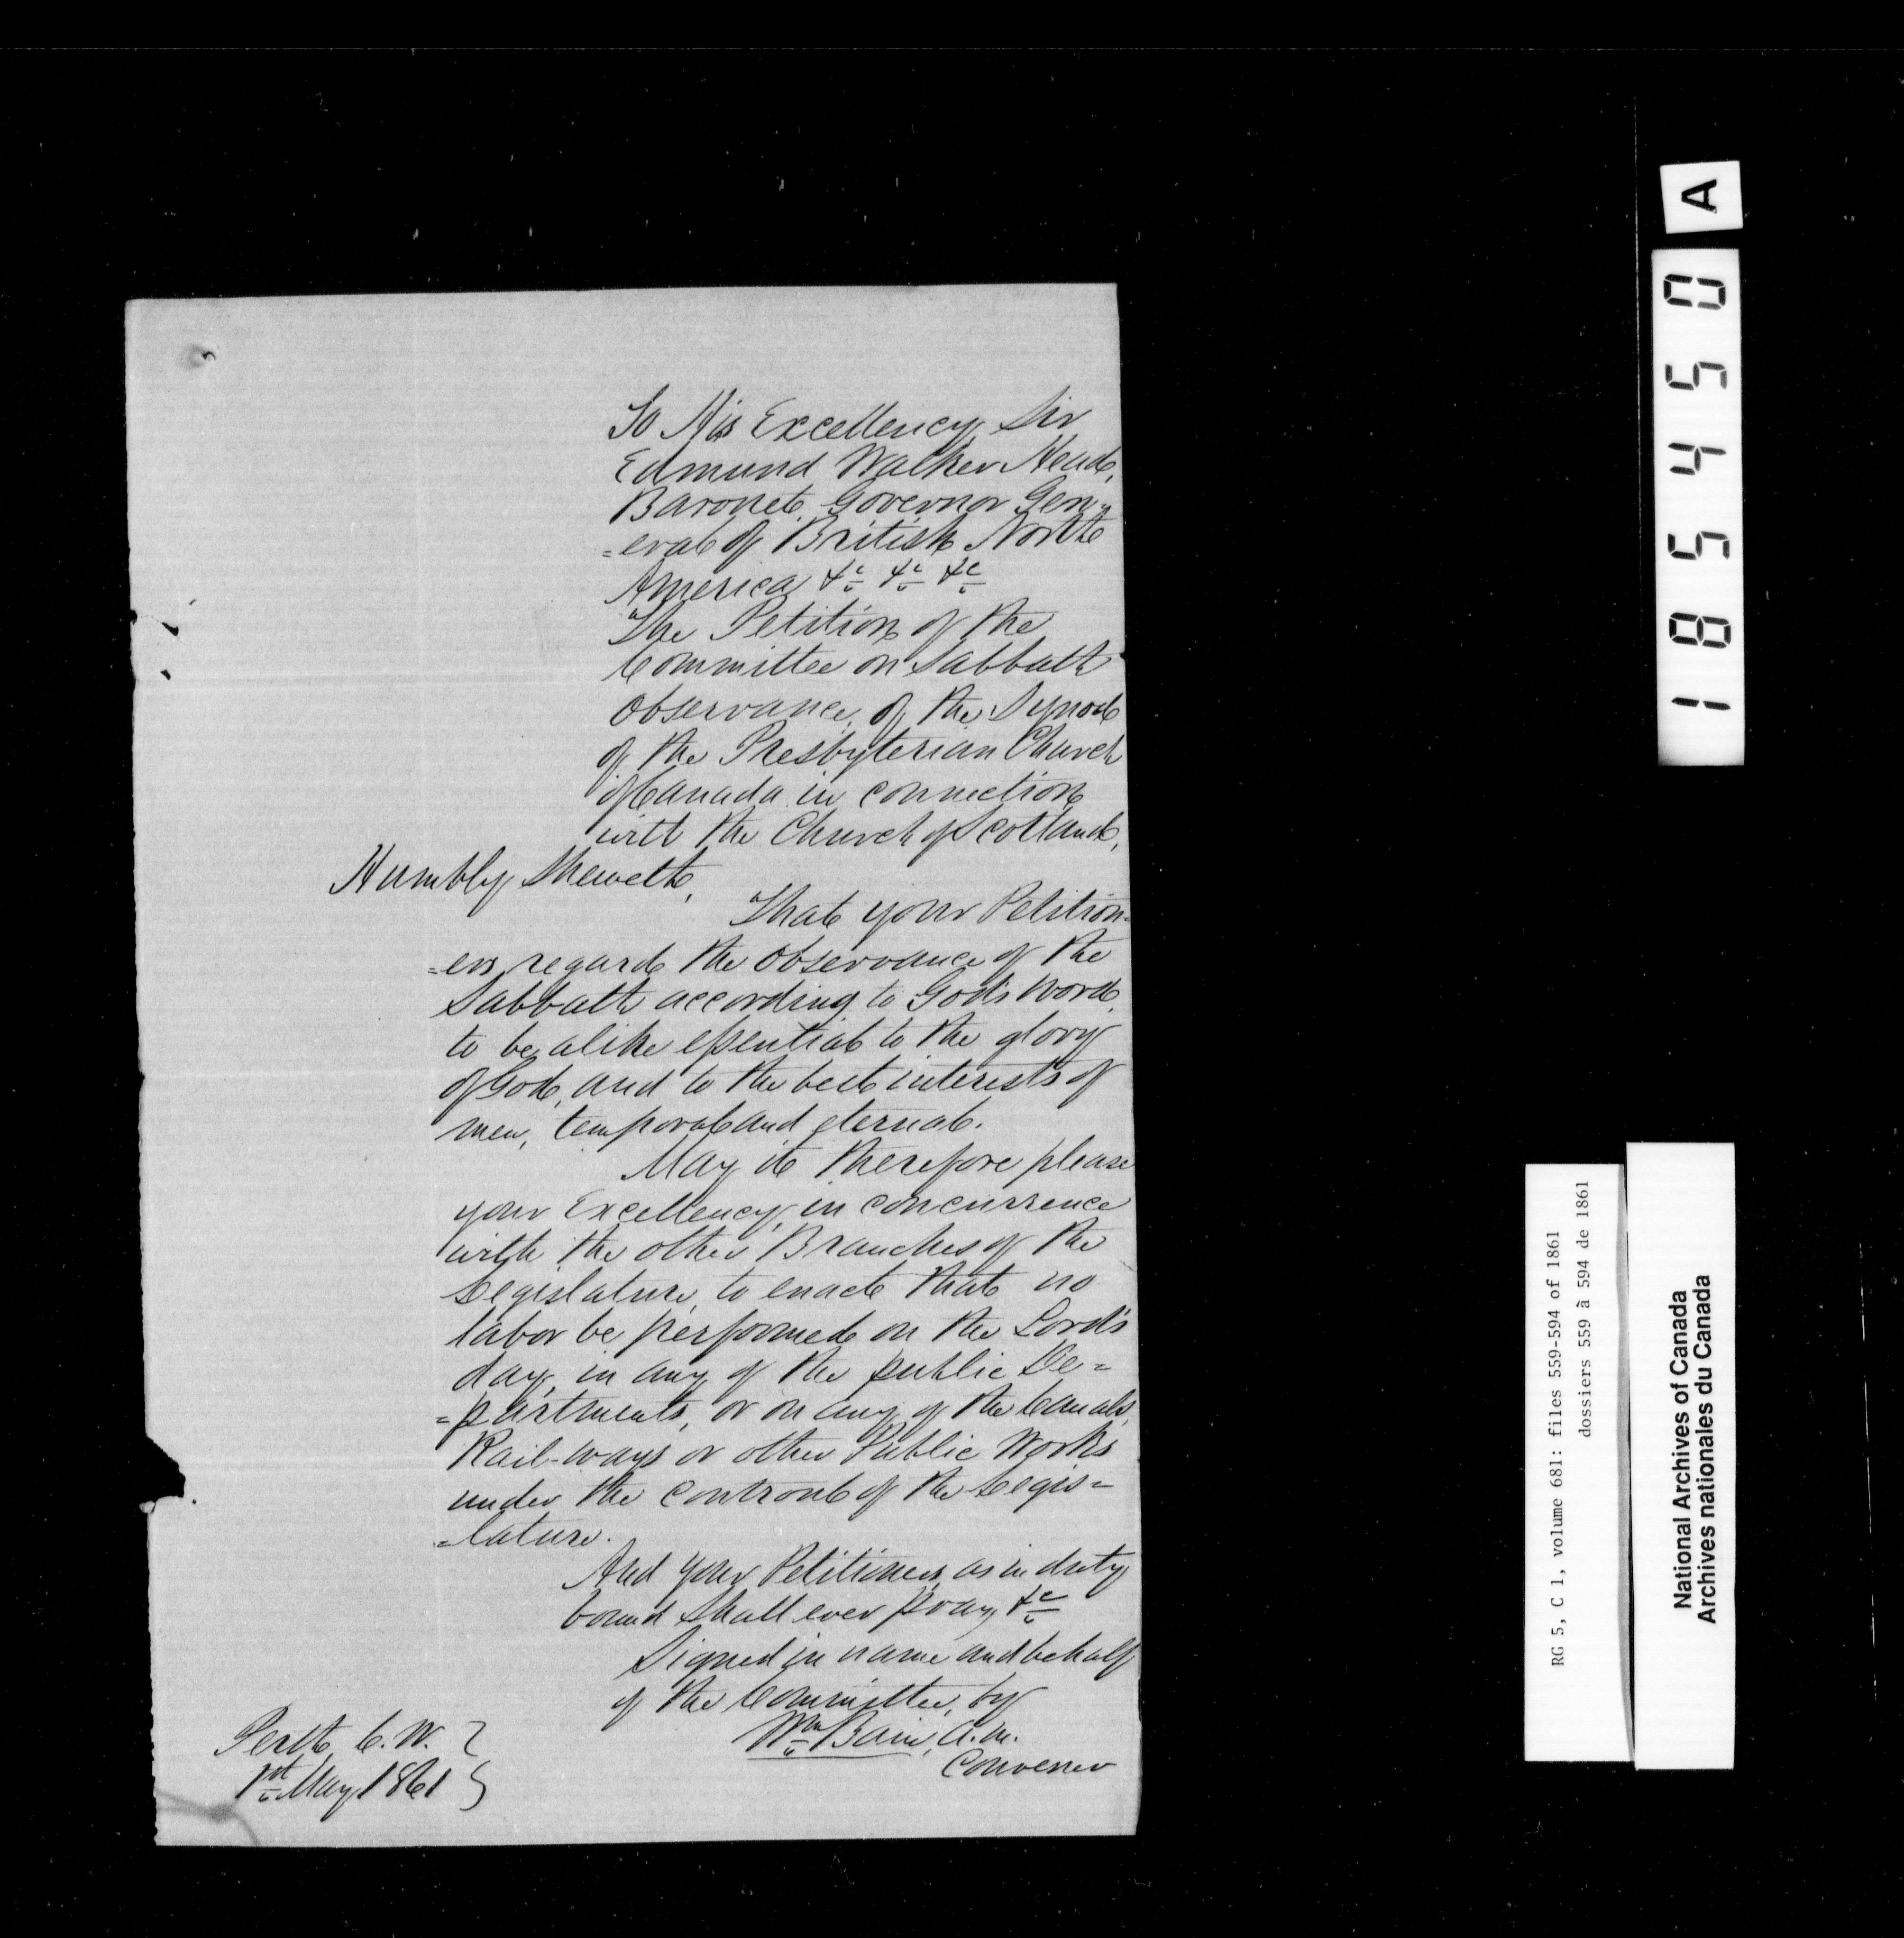 To His Excellency Sir
Edmund Walker Head,
Baronet, Governor Gen=
=eral of British North
America &c &c &c
The Petition of the
Committee on Sabbath
Observance, of the Synod
of the Presbyterian Church
of Canada in connection
with the Church of Scotland,
Humbly Sheweth,
That your Petition=
=ers regard the observance of the
Sabbath according to God's word,
to be alike essential to the glory
of God, and to the best interests of
men, temporal and eternal.
May it therefore please
your Excellency, in concurrence
with the other Branches of the
Legislature, to enact that no
labor be performed on the Lord's
day, in any of the public De=
=partments, or on any of the Canals,
Rail-ways or other Public Works
under the controul of the Legis=
=lature.
And your Petitioners as in duty
bound shall ever pray &c
Signed in name and behalf
of the Committee, by
Wm Bain, A.M.
Convener
Perth C.W.
1st May 1861
A
185450
RG 5, C 1, volume 681: files 559-594 of 1861
dossiers 559 à 594 de 1861
National Archives of Canada
Archives nationales du Canada